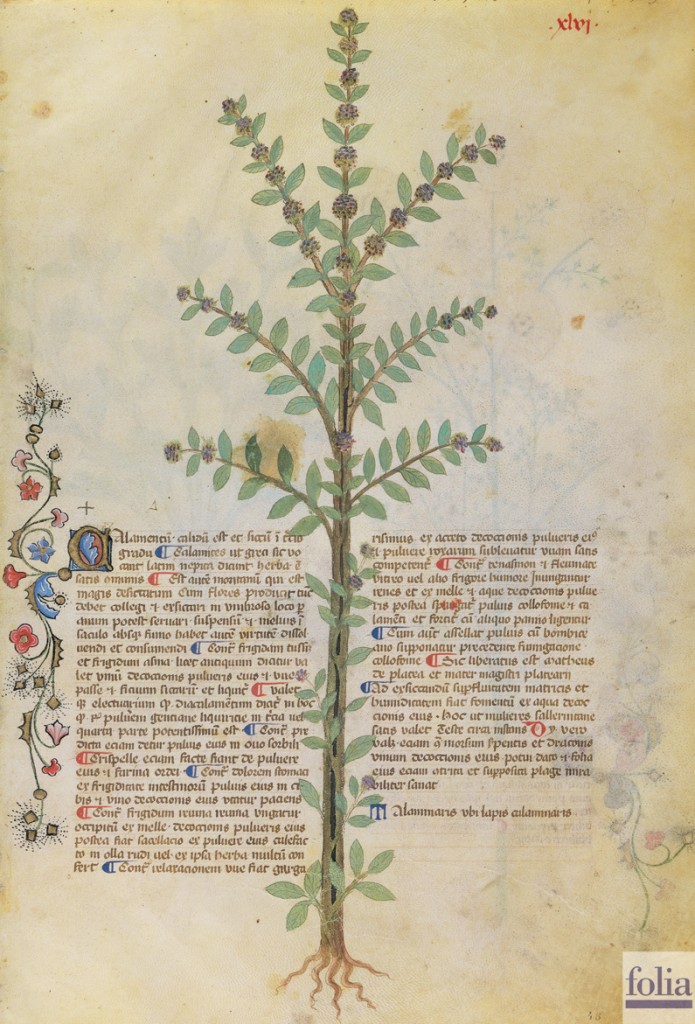 .xlvi.
Calamentū calidū est et siccū ī t̄cio
gradu ¶ Calamites ut greci sic vo
cant latini nepita dicant herba ē
satis omnibus ¶ Est autē montanū qui est
magis desiccatum Cum flores producit tūc
debet colligi ⁊ exsiccari in umbroso loco ꝑ
annum potest servari suspensū ⁊ melius ī
saculo absqꝫ fumo habet autē virtutē dissol
vendi et consumendi ¶ Contͣ frigidam tussī
et frigidum asma licet antiquum dicitur va
let vinū decoctionis pulveris eius ⁊ uve
passe ⁊ ficuum siccarū et liqͥric̄ ¶ valet
electuarium dyacalamentum hoc
pulverem gentiane liquiricie in t̄cia vel
quarta parte potentissimū est ¶ Contͣ pre
dicta eciam detur pulvis eius in ovo sorbili
¶ Crispelle eciam facte fiant de pulvere
eius ⁊ farina ordei ¶ Contͣ dolorem stomaci
ex frigiditate intestinorū pulvis eius in ci
bis ⁊ vino decoctionis eius utatur paciens
¶ Contͣ frigidum reuma ungatur
occipitiū ex melle decoctionis pulveris eius
postea fiat sacellacio ex pulvere eius calefac
to in olla rudi vel ex ipsa herba multū con
fert ¶ Contͣ relaxacionem uve fiat gͣrga
rismus ex acceto decoctionis pulveris eiꝰ
pulvere rosarum sublevatur uvam satis
competent̄ ¶ Contͣ tenasmon ex fleumate
vitreo vel alio frigido humore īnungantur
renes et ex melle ⁊ aque decoctionis pulve
ris postea spargat̄ pulvis collofonie et ca
lamēti et fortit̄ cū aliquo panno ligentur
¶ Cum autē assellat pulvis cū bombice
ano supponatur precedente fumigacione
collofonie ¶ Sic liberatus est matheus
de platea et mater magistri platearii
¶ Ad exsiccandū supfluitatem matricis et
humiditatem fiat fomentū ex aqua decoc
cionis eius hoc ut mulieres sallernitane
satis valet Teste circa instans Dy vero
valꝫ eciam 9̄ morsum serpentis et draconis
vinum decoctionis eius potui dato ⁊ folia
eius eciam attrita et supposita plage mira
biliter sanat
Calaminaris ubi lapis calaminaris
folia